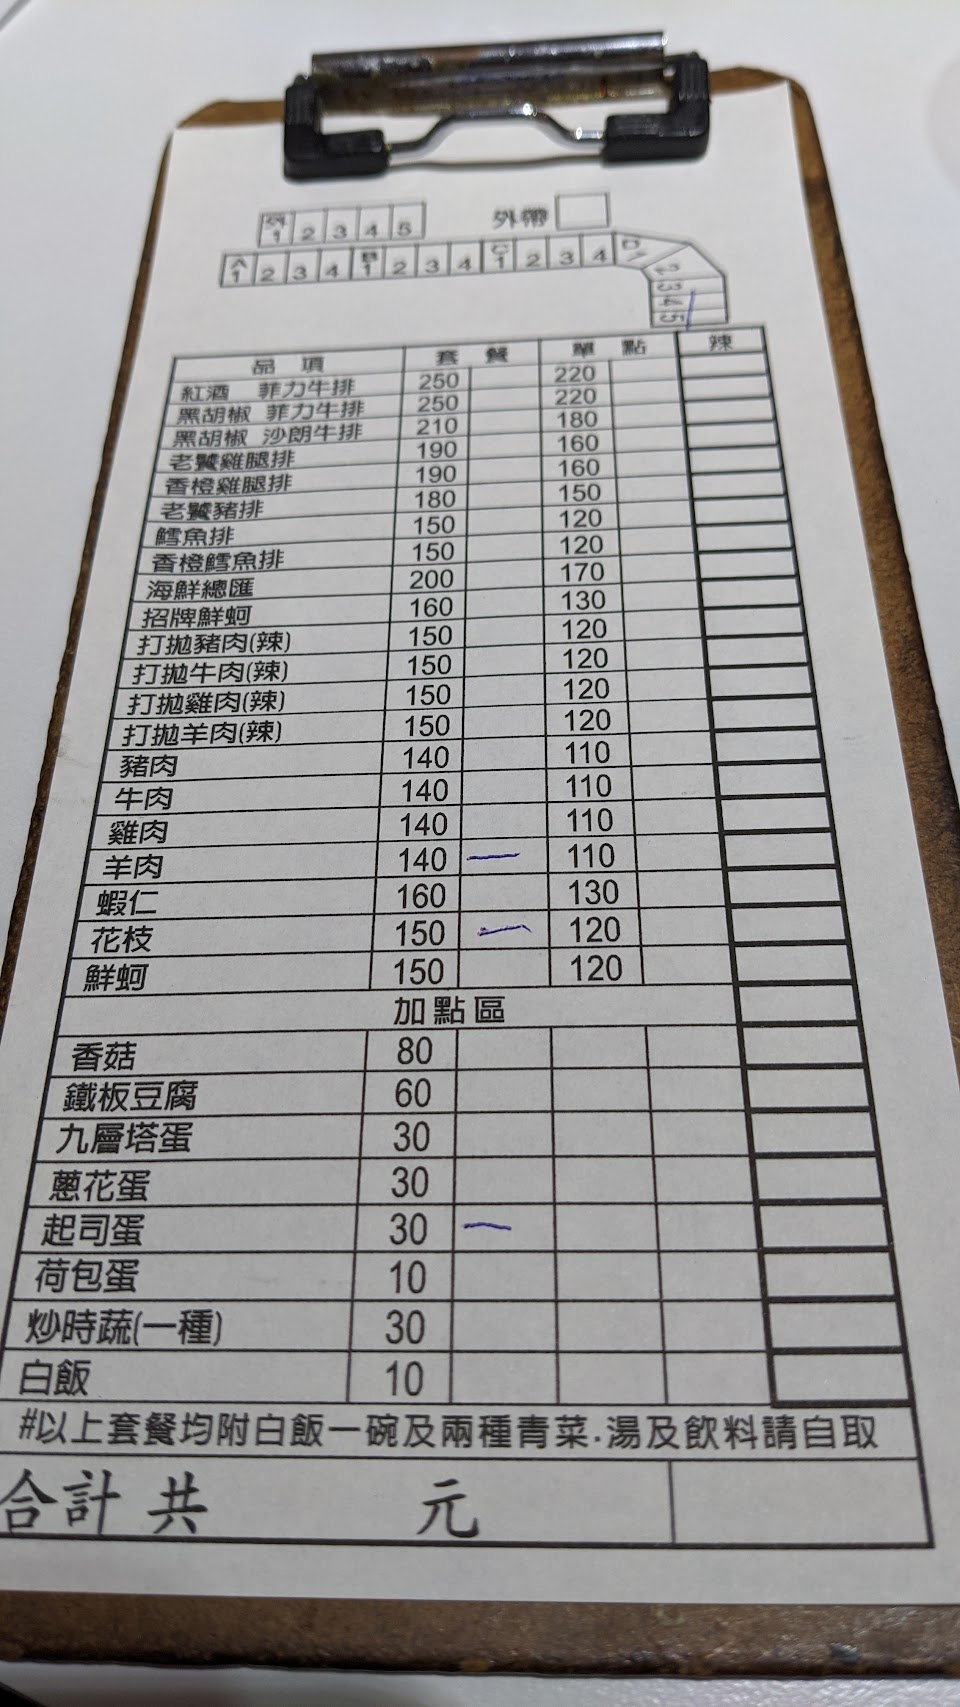 外1 2 3 4 5 外帶
A1 2 3 4 B1 2 3 4 C1 2 3 4 D1
2
3
4
5
品項 套餐 單點 辣
紅酒 菲力牛排 250 220
黑胡椒 菲力牛排 250 220
黑胡椒 沙朗牛排 210 180
老饕雞腿排 190 160
香橙雞腿排 190 160
老饕豬排 180 150
鱈魚排 150 120
香橙鱈魚排 150 120
海鮮總匯 200 170
招牌鮮蚵 160 130
打拋豬肉(辣) 150 120
打拋牛肉(辣) 150 120
打拋雞肉(辣) 150 120
打拋羊肉(辣) 150 120
豬肉 140 110
牛肉 140 110
雞肉 140 110
羊肉 140 一 110
蝦仁 160 130
花枝 150 一 120
鮮蚵 150 120
加點區
香菇 80
鐵板豆腐 60
九層塔蛋 30
蔥花蛋 30
起司蛋 30 一
荷包蛋 10
炒時蔬(一種) 30
白飯 10
#以上套餐均附白飯一碗及兩種青菜.湯及飲料請自取
合計 共 元